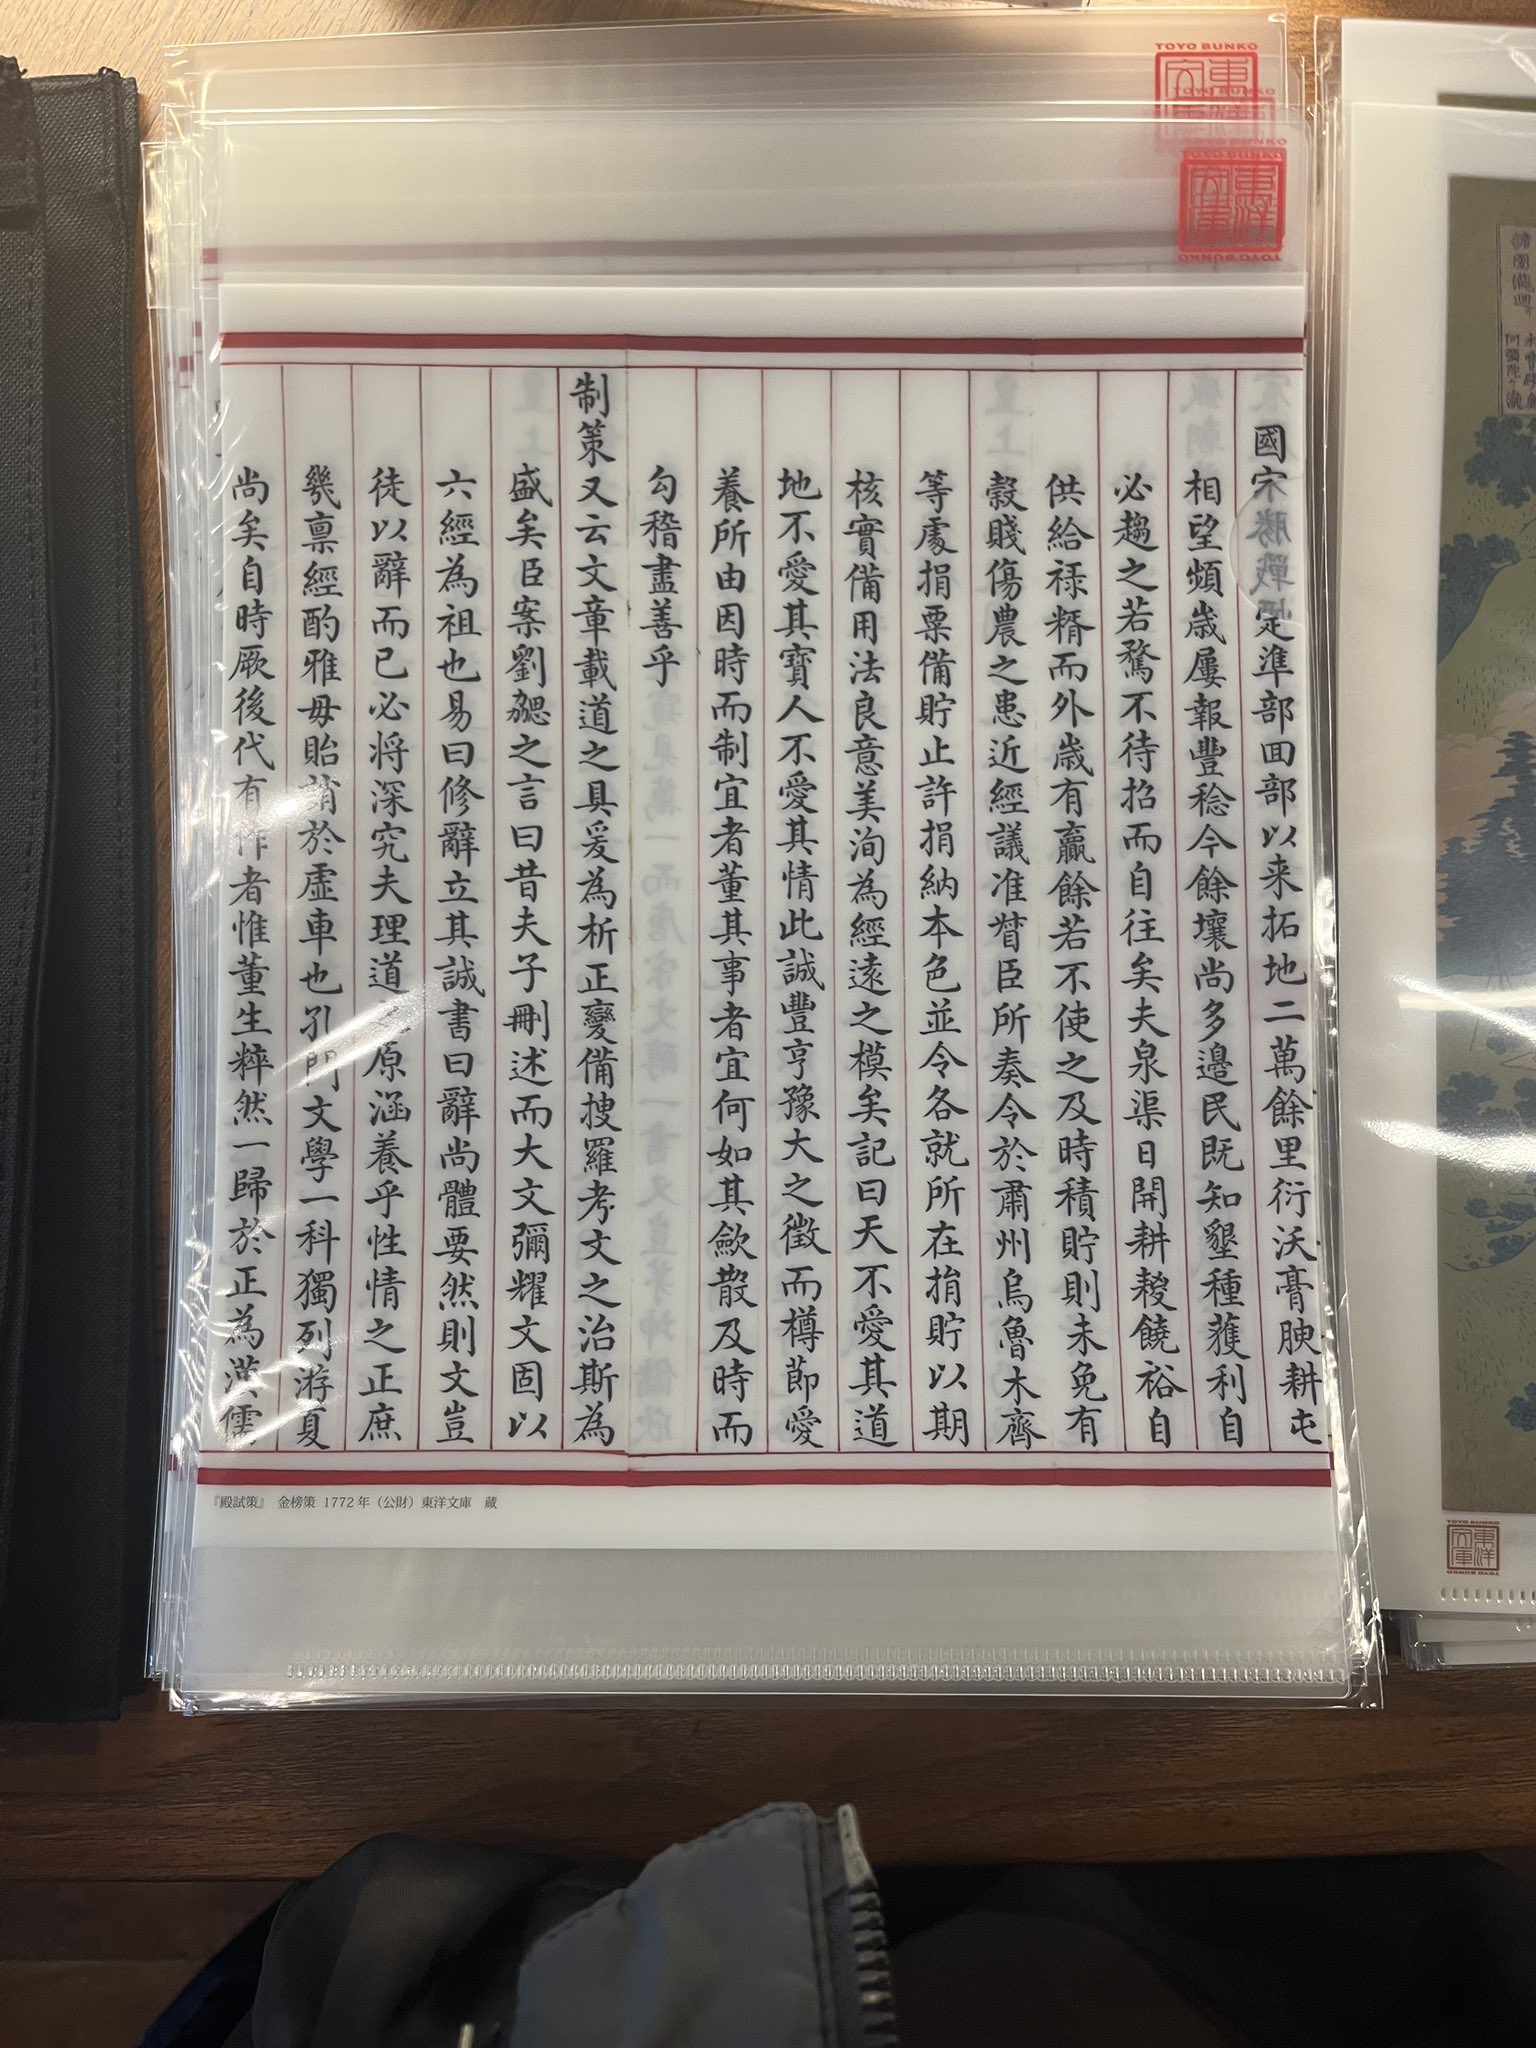 TOYO BUNKO
東洋文庫
TOYO BUNKO
TOYO BUNKO
東洋文庫
TOYO BUNKO
國家勝戰定準部回部以来拓地二萬餘里衍沃膏腴耕屯
相望頻歲屢報豐稔今餘壤尚多邊民既知墾種蓷利自
必趨之若鶩不待招而自往矣夫泉渠日開耕稷饒裕自
供給禄糈而外歲有贏餘若不使之及時積貯則未免有
穀賤傷農之患近經議准督臣所奏令於肅州烏魯木齊
等處捐粟備貯止許捐納本色並令各就所在捐貯以期
核實備用法良意美洵為經遠之模矣記曰天不愛其道
地不愛其寶人不愛其情此誠豐亨豫大之徵而樽節愛
養所由因時而制宜者董其事者宜何如其歛散及時而
勾稽盡善乎
制策又云文章載道之具爰為析正變備搜羅考文之治斯為
盛矣臣案劉勰之言曰昔夫子刪述而大文彌耀文固以
六經為祖也易曰修辭立其誠書曰辭尚體要然則文豈
徒以辭而已必将深究夫理道之原涵養乎性情之正庶
幾禀經酌雅毋貽誚於虛車也孔門文學一科獨列游夏
尚矣自時厥後代有作者惟董生粹然一歸於正為漢儒
『殿試策』 金榜策 1772年（公財）東洋文庫 蔵
諸國瀧廻り
TOYO BUNKO
東洋文庫
TOYO BUNKO